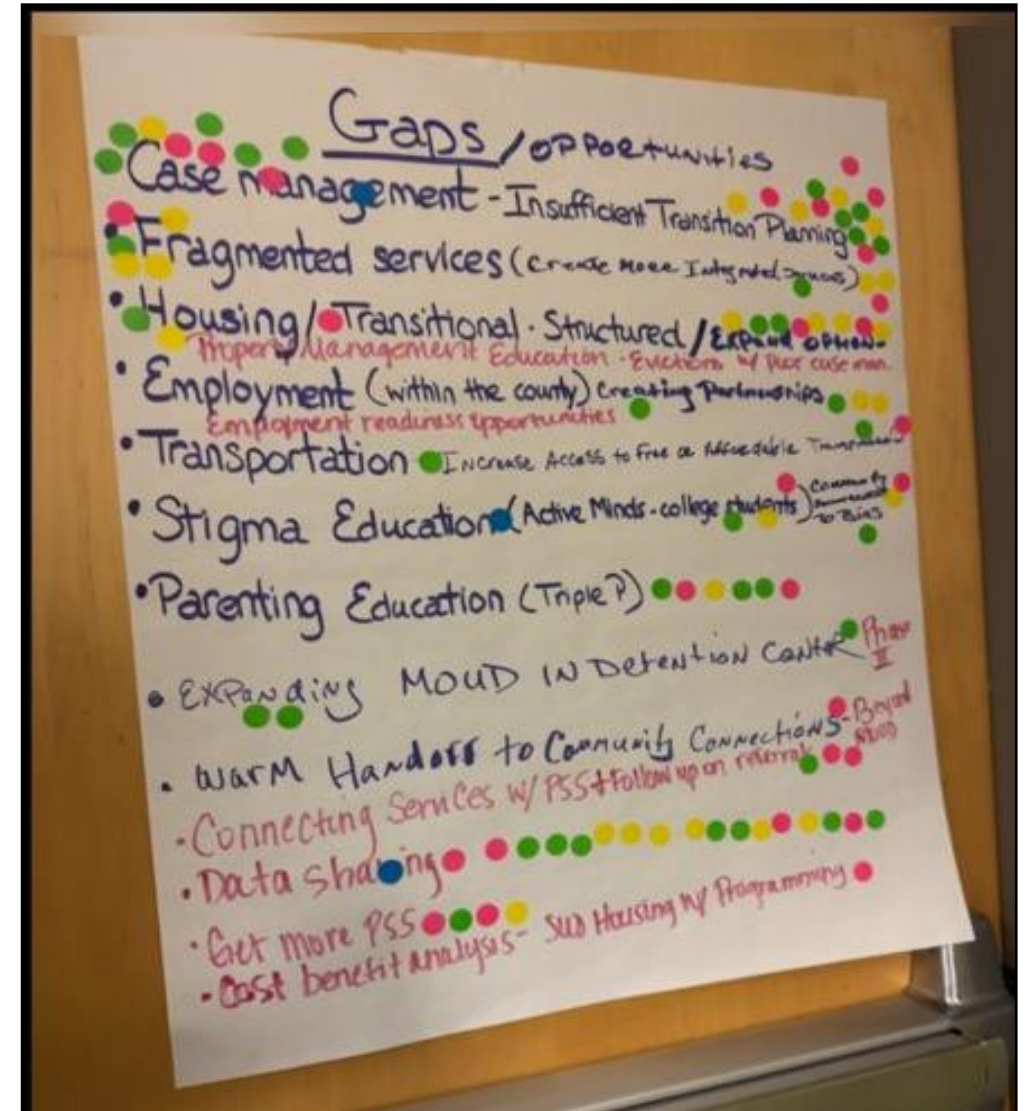 Gaps / OPPORTUNITIES
• Case management - Insufficient Transition Planning
• Fragmented services (Create More Integrated)
• Housing / Transitional - Structured / EXPAND OPTION
Property Management Education - Evictions w/ Poor case man.
• Employment (within the county) Creating Partnerships
Employment readiness opportunities
• Transportation Increase Access to Free or Affordable
• Stigma Education (Active Minds - college students) Community
to Bias
• Parenting Education (Triple P)
• EXPANDING MOUD IN Detention Center Phase
II
• WARM Handoff to Community Connections - Beyond
• Connecting Services w/ PSS + Follow up on referral
• Data Sharing
• Get more PSS
• Cost benefit analysis - Housing w/ Programming